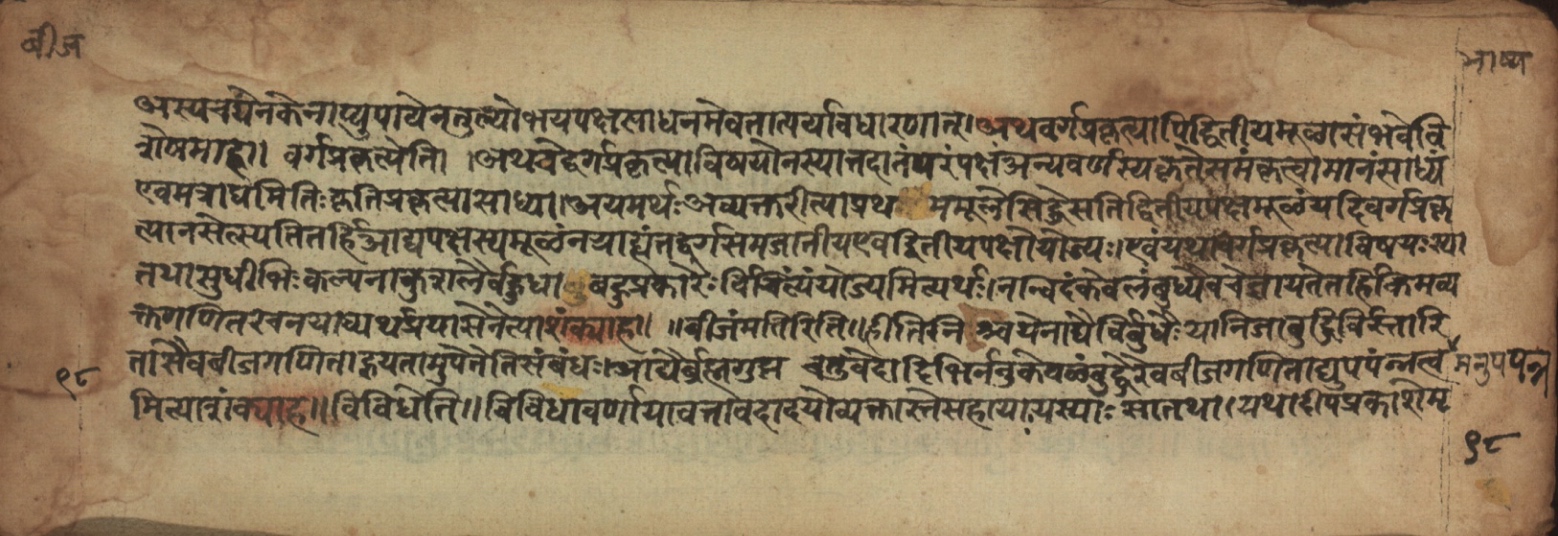 बीज
भाष्य
अस्य च येन केनाप्युपायेन तुल्योभयपक्षसाधनमेव तात्पर्यावधारणात्। अथ वर्गप्रकृत्यापि द्वितीयमूलासंभवे वि
शेषमाह॥ वर्गप्रकृत्येति। अथ चेद्वर्गप्रकृत्या विषयो न स्यात्तदा तं परं पक्षं अन्यवर्णस्य कृतेः समं कृत्वा मानं साध्यं
एवमत्राद्यमितिः कृतिप्रकृत्या साध्या॥ अयमर्थः अव्यक्तरीत्या प्रथममूले सिद्धे सति द्वितीयपक्षमूलं यदि वर्गप्रकृ
त्या न सेत्स्यति तर्हि आद्यपक्षस्य मूलं न ग्राह्यं तद्वर्गसमजातीय एव द्वितीयपक्षो योज्यः। एवं यथा वर्गप्रकृत्या विषयः स्या
तथा सुधीभिः कल्पनाकुशलैर्बहुधा बहुप्रकारैः विचिंत्यं योज्यमित्यर्थः। नन्विदं केवलं बुध्यैव चेज्ज्ञायते तर्हि किमव्य
क्तगणितरचनया व्यर्थप्रयासेनेत्याशंक्याह॥ ॥बीजं मतिरिति॥ हीति निश्चयेनाद्यैर्विबुधैः या निजाबुद्धिर्विस्तारि
ता सैव बीजगणिताह्वयतामुपेतेति संबंधः। आद्यैर्ब्रह्मगुप्त चतुर्वेदादिभिर्ननु केवलं बुद्धेरेव बीजगणिताद्युपपंन्नत्व मनुपपन्न
मित्याशंक्याह॥ विविधेति॥ विविधा वर्णा यावत्तावदादयो व्यक्तास्ते सहाया यस्याः सा तथा। यथा दीपप्रकाशे मृ
९८
९८